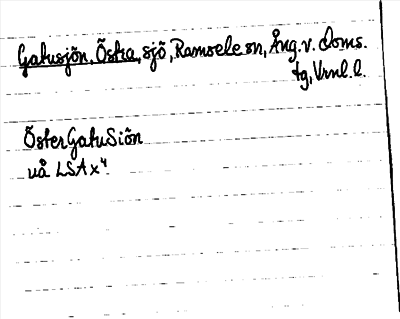 Gatusjön, Östra, sjö, Ramsele sn, Ång. v. doms.
tg, Vrnl. l.
ÖsterGatuSiön
uå LSA x⁴.